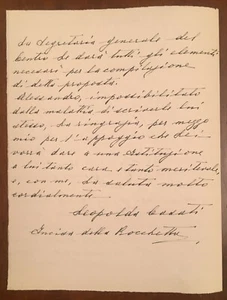 La Segretaria generale del
Centro Le darà tutti gli elementi
necessari per la compilazione
di detta proposta.
Alessandro, impossibilitato
dalla malattia di scriverle lui
stesso, La ringrazia, per mezzo
mio per l'appoggio che Lei
vorrà dare a una Istituzione
a lui tanto cara e tanto meritevole
e, con me, La saluta molto
cordialmente.
Leopolda Casati
Incisa della Rocchetta